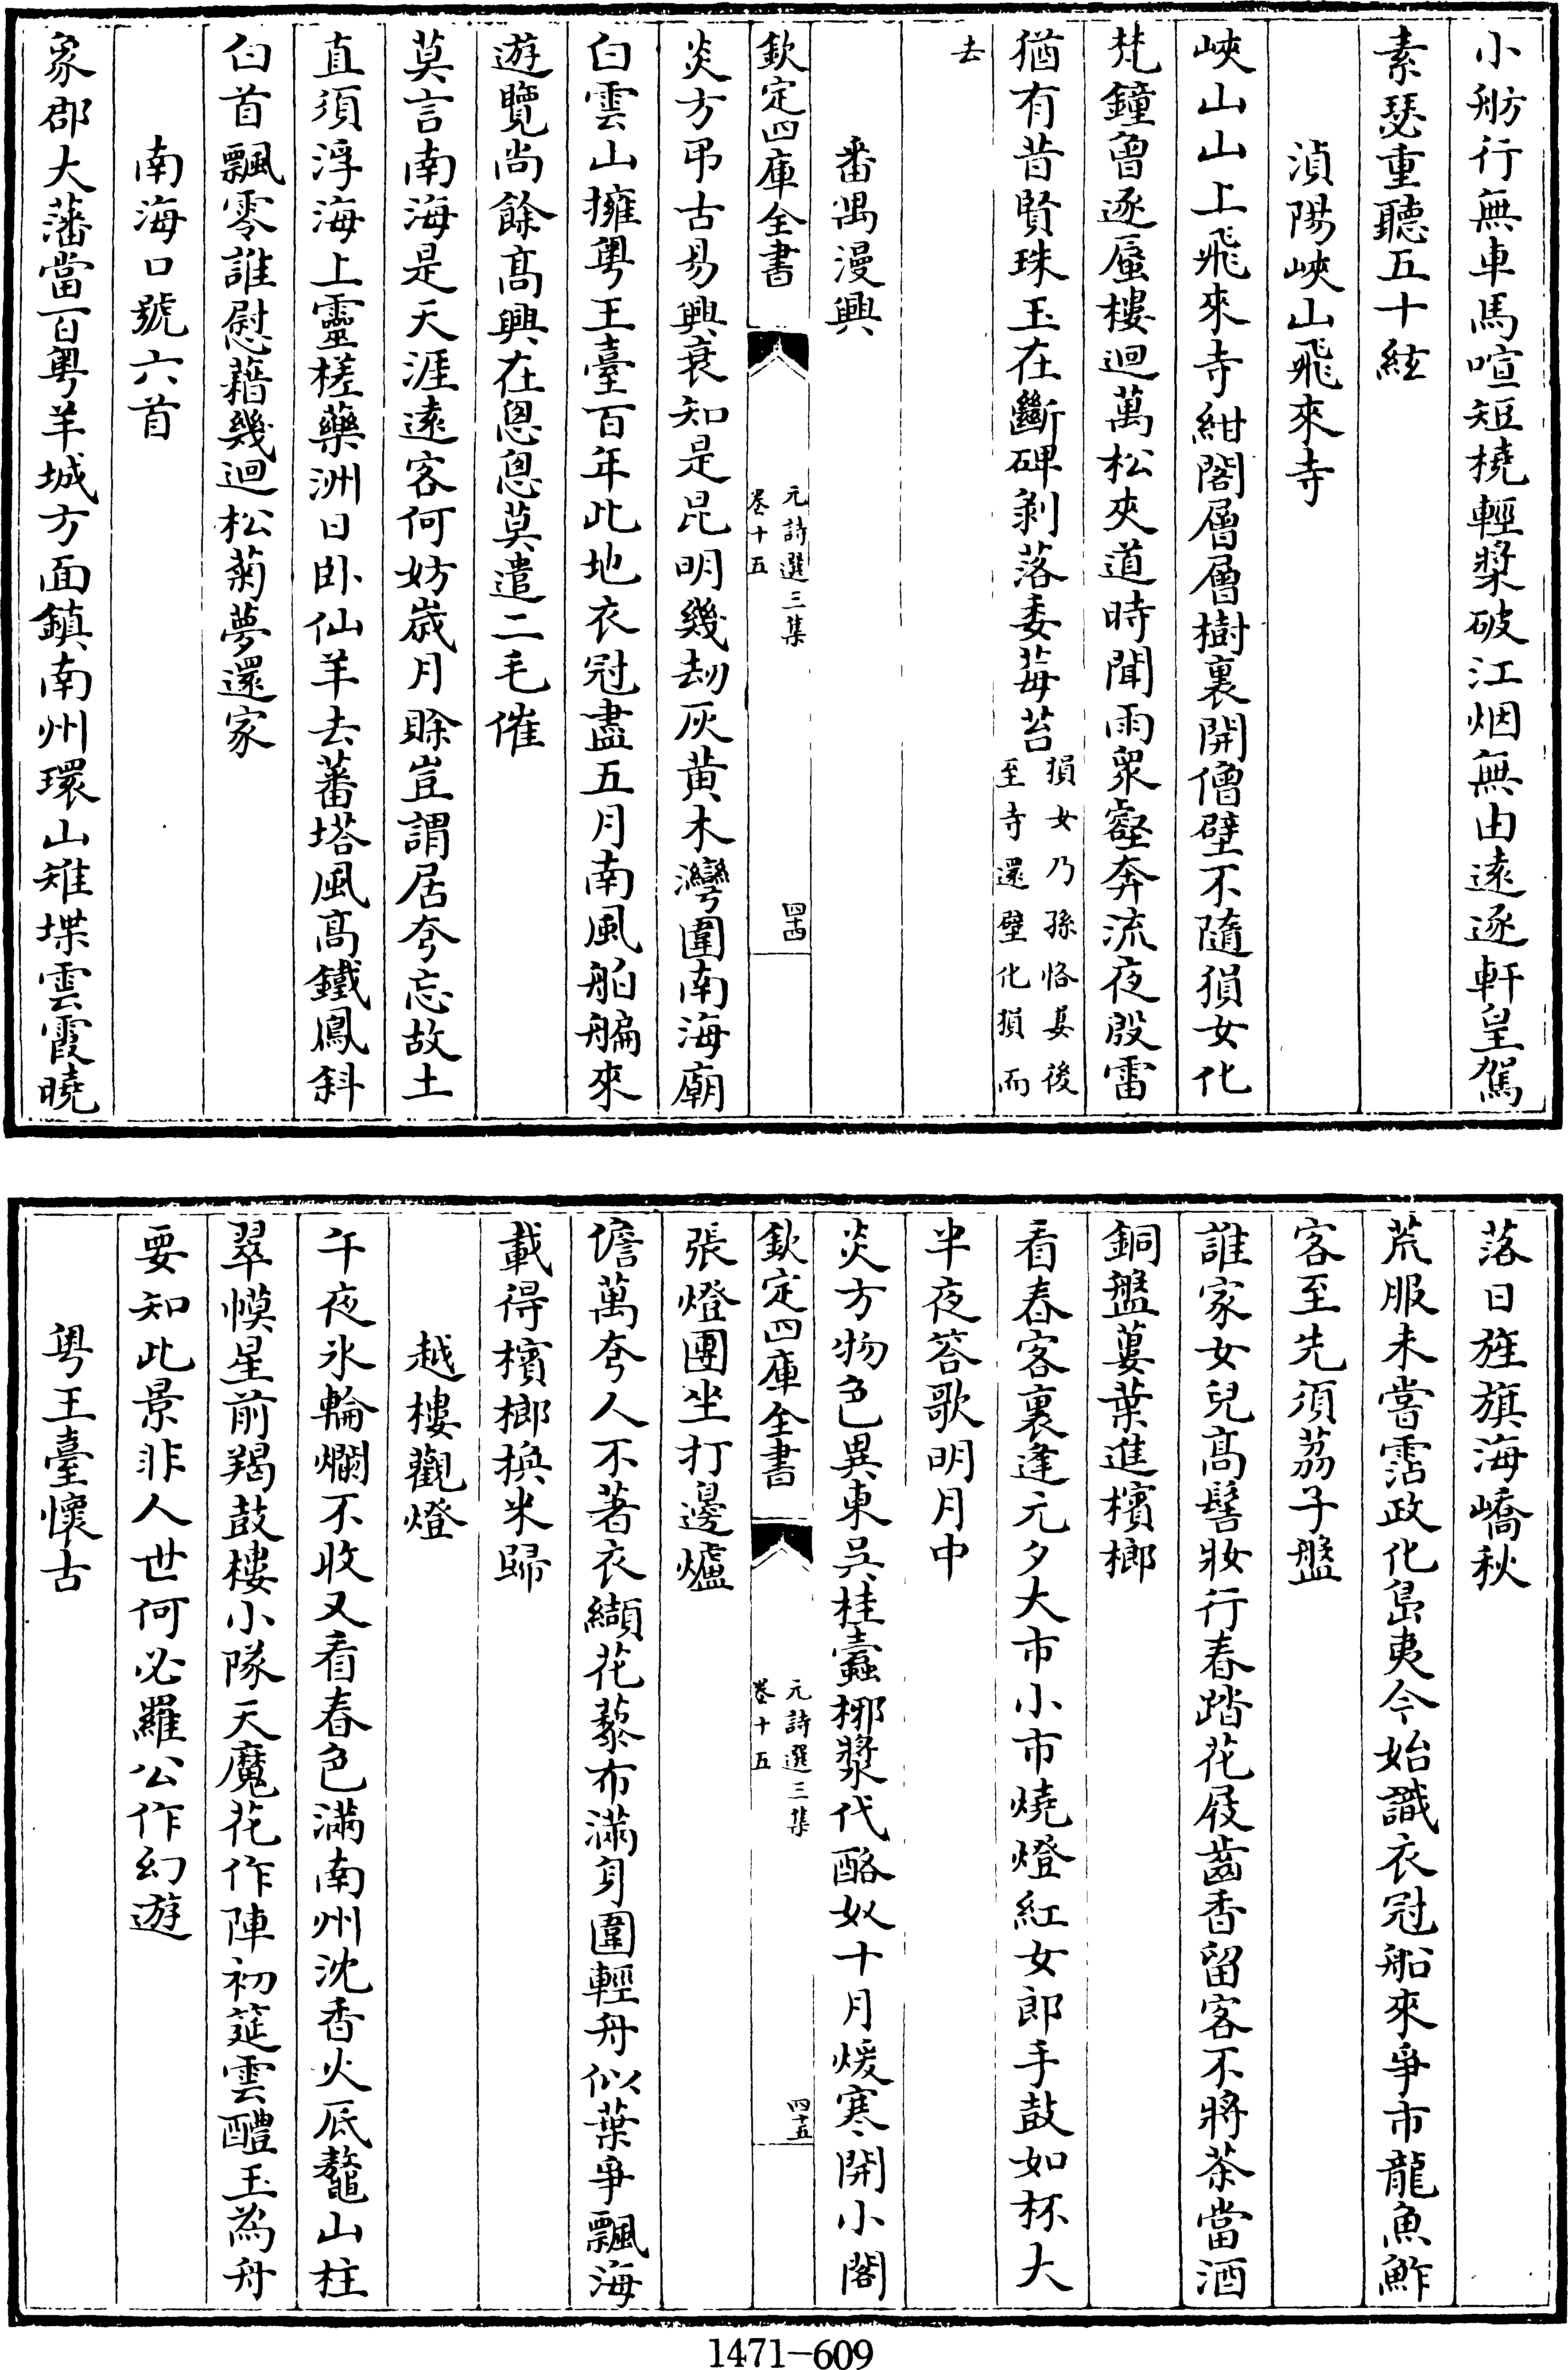 小舫行無車馬喧短橈輕槳破江烟無由遠逐軒皇駕
素瑟重聽五十絃
湞陽峽山飛來寺
峽山山上飛來寺紺閣層層樹裏開僧壁不隨猿女化
梵鐘曾逐蜃樓迴萬松夾道時聞雨衆壑奔流夜殷雷
猶有昔賢珠玉在斷碑剥落委莓苔猿女乃孫恪妻後
至寺還壁化猿而
去
番禺漫興
欽定四庫全書
元詩選三集
卷十五
四十四
炎方弔古易興衰知是昆明幾刼灰黄木灣圍南海廟
白雲山擁粤王臺百年此地衣冠盡五月南風舶艑來
遊覽尚餘髙興在悤悤莫遣二毛催
莫言南海是天涯遠客何妨歲月賖豈謂居夸忘故土
直須浮海上靈槎藥洲日卧仙羊去蕃塔風髙鐵鳳斜
白首飄零誰慰藉幾迴松菊夢還家
南海口號六首
象郡大藩當百粤羊城方面鎮南州環山雉堞雲霞曉
落日旌旗海嶠秋
荒服未嘗霑政化島夷今始識衣冠船來爭市龍魚鮓
客至先須荔子盤
誰家女兒髙髻妝行春踏花屐齒香留客不將茶當酒
銅盤蔞葉進檳榔
看春客裏逢元夕大市小市燒燈紅女郎手鼓如杯大
半夜答歌明月中
炎方物色異東吳桂蠧栁漿代酪奴十月煖寒開小閣
欽定四庫全書
元詩選三集
卷十五
四十五
張燈團坐打邊爐
儋萬夸人不著衣纈花藜布滿身圍輕舟似葉爭飄海
載得檳榔換米歸
越樓觀燈
午夜氷輪爛不收又看春色滿南州沈香火底鼇山柱
翠幙星前羯鼓樓小隊天魔花作陣初筵雲醴玉為舟
要知此景非人世何必羅公作幻遊
粤王臺懷古
1471-609